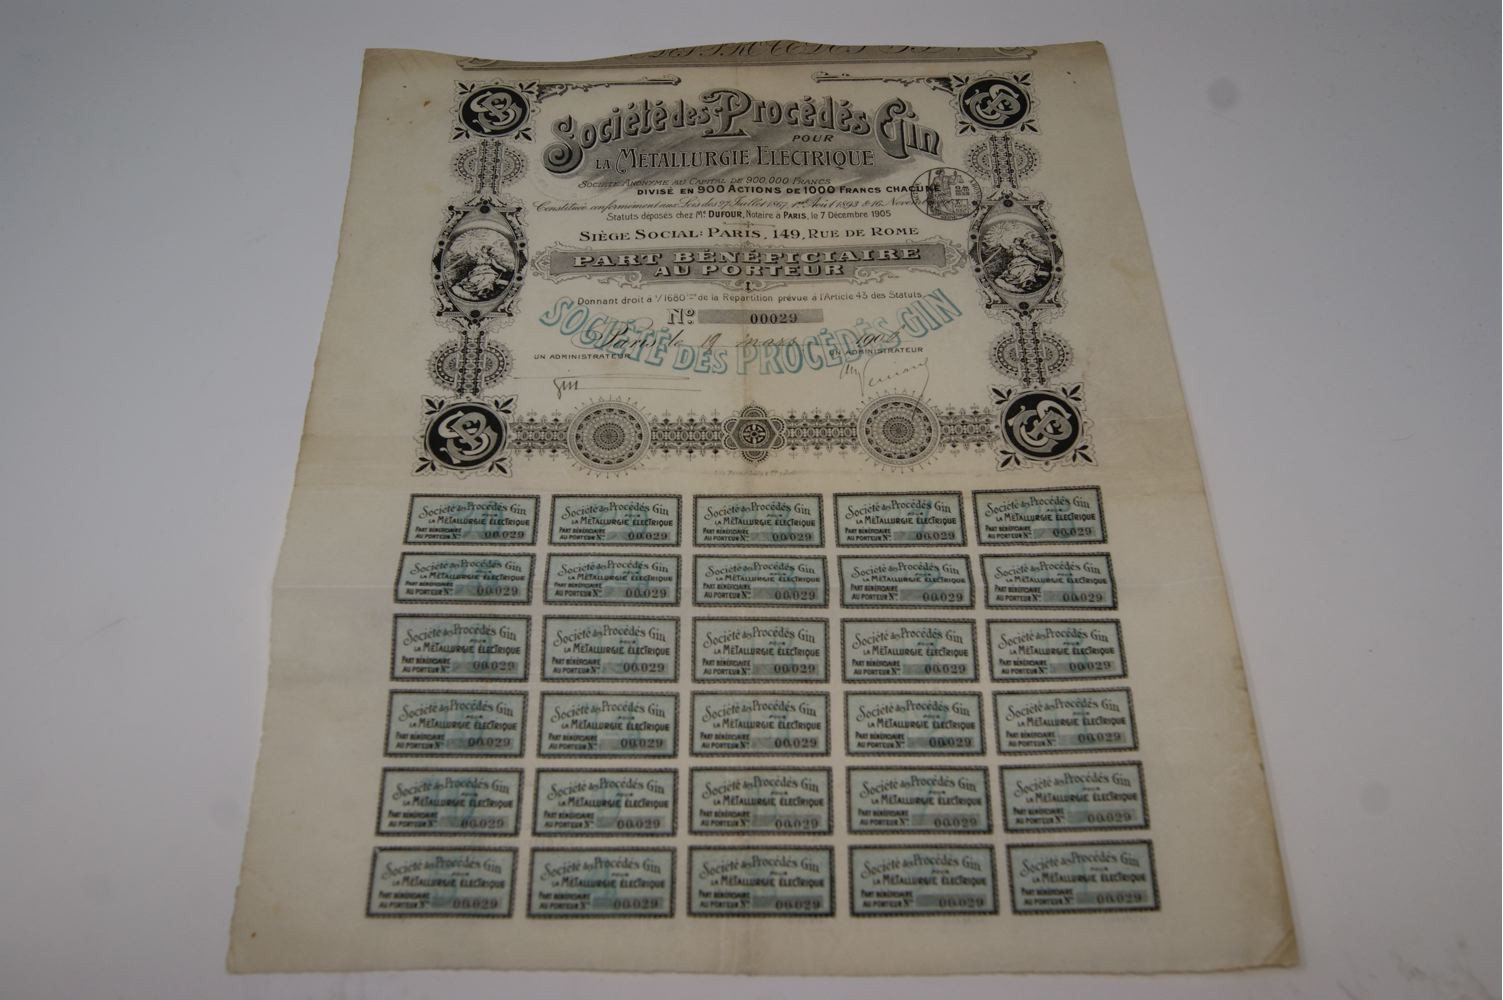 Société des Procédés Gin
POUR
LA MÉTALLURGIE ELECTRIQUE
SOCIÉTÉ ANONYME AU CAPITAL DE 900.000 FRANCS
DIVISÉ EN 900 ACTIONS DE 1000 FRANCS CHACUNE
Constituée conformément aux Lois des 27 Juillet 1867, 1er Août 1893 & 16
Statuts déposés chez Me DUFOUR, Notaire à PARIS, le 7 Décembre 1905
SIÈGE SOCIAL: PARIS, 149, RUE DE ROME
PART BÉNÉFICIAIRE
AU PORTEUR
Donnant droit à 1/1680me de la Répartition prévue à l'Article 43 des Statuts
No 00029
SOCIÉTÉ DES PROCÉDÉS GIN
Paris le 19 mars
UN ADMINISTRATEUR UN ADMINISTRATEUR
Gin
Société des Procédés Gin Société des Procédés Gin Société des Procédés Gin Société des Procédés Gin Société des Procédés Gin
POUR POUR POUR POUR POUR
LA MÉTALLURGIE ÉLECTRIQUE LA MÉTALLURGIE ÉLECTRIQUE LA MÉTALLURGIE ÉLECTRIQUE LA MÉTALLURGIE ÉLECTRIQUE LA MÉTALLURGIE ÉLECTRIQUE
PART BÉNÉFICIAIRE PART BÉNÉFICIAIRE PART BÉNÉFICIAIRE PART BÉNÉFICIAIRE PART BÉNÉFICIAIRE
AU PORTEUR No 00029 AU PORTEUR No 00029 AU PORTEUR No 00029 AU PORTEUR No 00029 AU PORTEUR No 00029
Société des Procédés Gin Société des Procédés Gin Société des Procédés Gin Société des Procédés Gin Société des Procédés Gin
POUR POUR POUR POUR POUR
LA MÉTALLURGIE ÉLECTRIQUE LA MÉTALLURGIE ÉLECTRIQUE LA MÉTALLURGIE ÉLECTRIQUE LA MÉTALLURGIE ÉLECTRIQUE LA MÉTALLURGIE ÉLECTRIQUE
PART BÉNÉFICIAIRE PART BÉNÉFICIAIRE PART BÉNÉFICIAIRE PART BÉNÉFICIAIRE PART BÉNÉFICIAIRE
AU PORTEUR No 00029 AU PORTEUR No 00029 AU PORTEUR No 00029 AU PORTEUR No 00029 AU PORTEUR No 00029
Société des Procédés Gin Société des Procédés Gin Société des Procédés Gin Société des Procédés Gin Société des Procédés Gin
POUR POUR POUR POUR POUR
LA MÉTALLURGIE ÉLECTRIQUE LA MÉTALLURGIE ÉLECTRIQUE LA MÉTALLURGIE ÉLECTRIQUE LA MÉTALLURGIE ÉLECTRIQUE LA MÉTALLURGIE ÉLECTRIQUE
PART BÉNÉFICIAIRE PART BÉNÉFICIAIRE PART BÉNÉFICIAIRE PART BÉNÉFICIAIRE PART BÉNÉFICIAIRE
AU PORTEUR No 00029 AU PORTEUR No 00029 AU PORTEUR No 00029 AU PORTEUR No 00029 AU PORTEUR No 00029
Société des Procédés Gin Société des Procédés Gin Société des Procédés Gin Société des Procédés Gin Société des Procédés Gin
POUR POUR POUR POUR POUR
LA MÉTALLURGIE ÉLECTRIQUE LA MÉTALLURGIE ÉLECTRIQUE LA MÉTALLURGIE ÉLECTRIQUE LA MÉTALLURGIE ÉLECTRIQUE LA MÉTALLURGIE ÉLECTRIQUE
PART BÉNÉFICIAIRE PART BÉNÉFICIAIRE PART BÉNÉFICIAIRE PART BÉNÉFICIAIRE PART BÉNÉFICIAIRE
AU PORTEUR No 00029 AU PORTEUR No 00029 AU PORTEUR No 00029 AU PORTEUR No 00029 AU PORTEUR No 00029
Société des Procédés Gin Société des Procédés Gin Société des Procédés Gin Société des Procédés Gin Société des Procédés Gin
POUR POUR POUR POUR POUR
LA MÉTALLURGIE ÉLECTRIQUE LA MÉTALLURGIE ÉLECTRIQUE LA MÉTALLURGIE ÉLECTRIQUE LA MÉTALLURGIE ÉLECTRIQUE LA MÉTALLURGIE ÉLECTRIQUE
PART BÉNÉFICIAIRE PART BÉNÉFICIAIRE PART BÉNÉFICIAIRE PART BÉNÉFICIAIRE PART BÉNÉFICIAIRE
AU PORTEUR No 00029 AU PORTEUR No 00029 AU PORTEUR No 00029 AU PORTEUR No 00029 AU PORTEUR No 00029
Société des Procédés Gin Société des Procédés Gin Société des Procédés Gin Société des Procédés Gin Société des Procédés Gin
POUR POUR POUR POUR POUR
LA MÉTALLURGIE ÉLECTRIQUE LA MÉTALLURGIE ÉLECTRIQUE LA MÉTALLURGIE ÉLECTRIQUE LA MÉTALLURGIE ÉLECTRIQUE LA MÉTALLURGIE ÉLECTRIQUE
PART BÉNÉFICIAIRE PART BÉNÉFICIAIRE PART BÉNÉFICIAIRE PART BÉNÉFICIAIRE PART BÉNÉFICIAIRE
AU PORTEUR No 00029 AU PORTEUR No 00029 AU PORTEUR No 00029 AU PORTEUR No 00029 AU PORTEUR No 00029